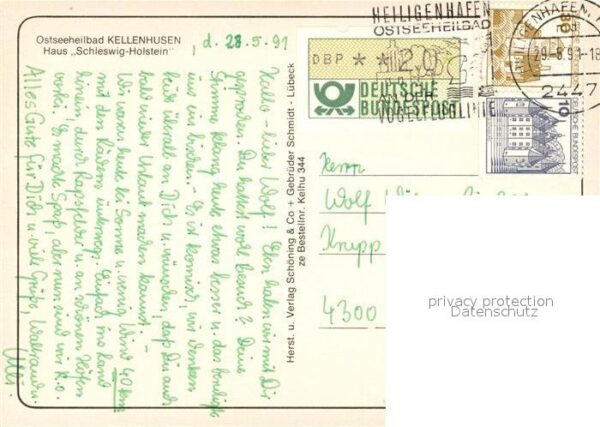 Ostseeheilbad KELLENHUSEN
Haus „Schleswig-Holstein"
, d. 28.5.91
Hallo – lieber Wolf! Eben haben wir mit Dir
gesprochen. Du hattest wohl Besuch? Deine
Stimme klang heute etwas besser u. das beruhigte
uns ein bißchen. – Es ist komisch, wir denken
fast überall an Dich u. wünschen, daß Du auch
bald wieder Urlaub machen kannst. –
Wir waren heute bei Sonne u. wenig Wind 40 km
mit den Rädern unterwegs. Einfach ins Land
hinein, durch Rapsfelder u. an schönen Höfen
vorbei. Es machte Spaß, aber nun sind wir k.o.
Alles Gute für Dich u. viele Grüße, Waltraud u.
Ulli.
Herst. u. Verlag Schöning & Co + Gebrüder Schmidt - Lübeck
ze Bestellnr. Kelhu 344
DBP **120
DEUTSCHE
BUNDESPOST
HEILIGENHAFEN
OSTSEEHEILBAD
VOGELFLUGLINIE
HEILIGENHAFEN,
29.-5.91-18
2447
80
10
DEUTSCHE BUNDESPOST
Herrn
Wolf
Krupp
4300
privacy protection
Datenschutz